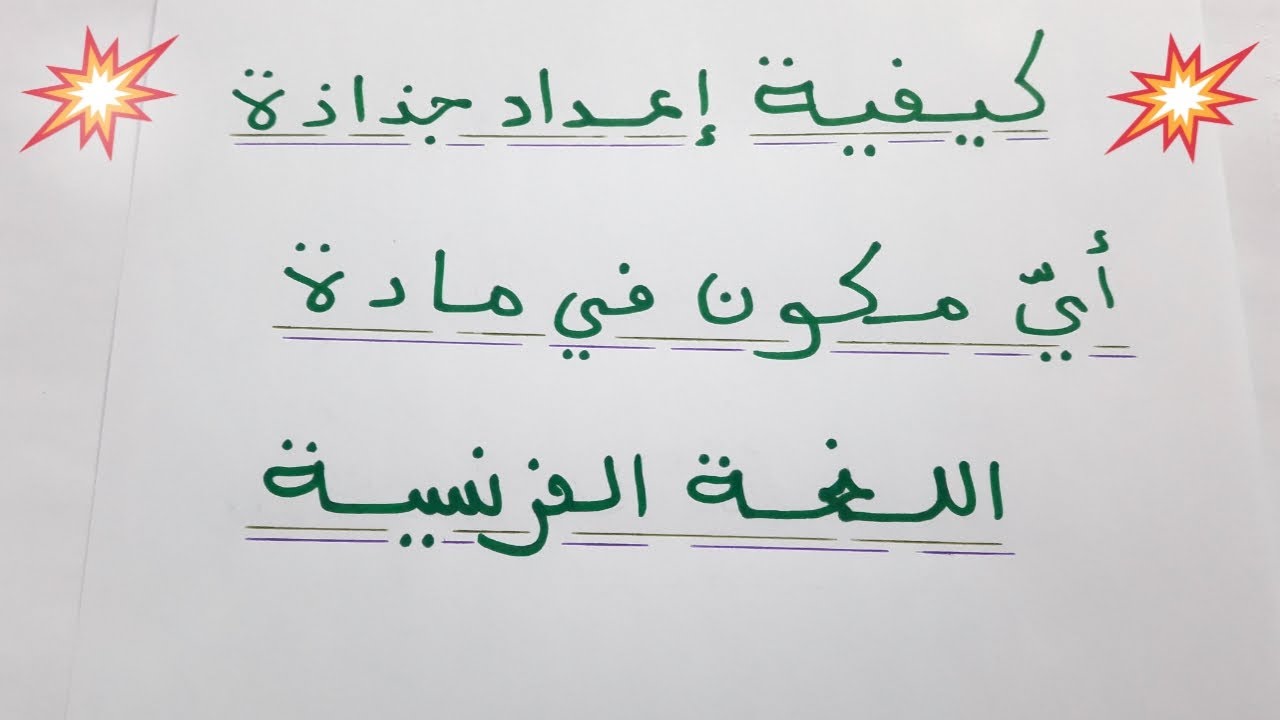 كيفية إعداد جذاذة
أيّ مكون في مادة
اللغة الفرنسية